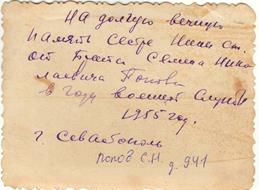 На долгую вечную
память сестре Нине ст.
от Брата Семёна Нико
лаевича Попова
в годы военной службы
1955 год.
г. Севастополь
Попов С.Н. д. 941